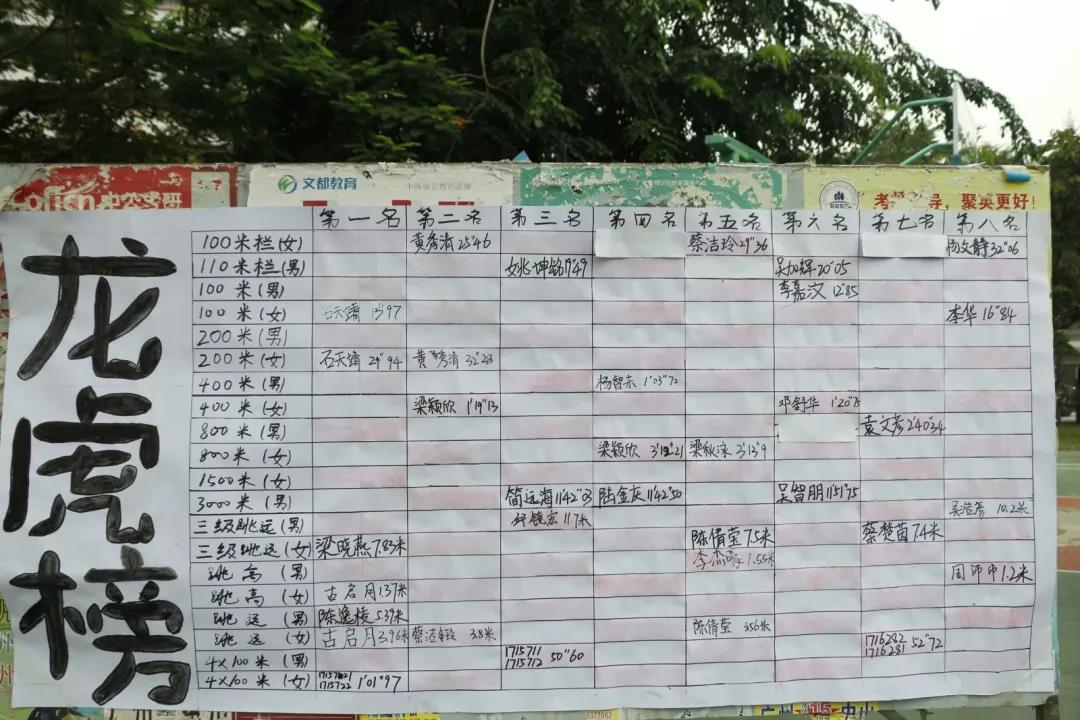 文都教育
中国知名教育品牌
聚英更好!
龙虎榜
第一名 第二名 第三名 第四名 第五名 第六名 第七名 第八名
100米栏(女) 黄秀清 25"46 蔡洁玲 29"36 杨文静 32"06
110米栏(男) 姚坤铭 19"49 吴加辉 20"05
100米(男) 李嘉汶 12"85
100米(女) 石天婧 13"97 李华 16"84
200米(男)
200米(女) 石天婧 29"94 黄秀清 32"28
400米(男) 杨智赤 1'03"72
400米(女) 梁颖欣 1'19"13 邓舒华
800米(男) 袁文彦 2'40"34
800米(女) 梁颖欣 梁秋泳 3'13"9
1500米(女)
3000米(男) 简远海 11'42"03 陆金灰 11'42"50 吴智朋 11'51"75
三级跳远(男) 11.7米 10.2米
三级跳远(女) 梁晓燕 7.83米 陈倩莹 7.5米 蔡楚茵 7.4米
跳高(男) 1.55米
跳高(女) 古启月 1.37米 1.2米
跳远(男) 陈逸棱 5.39米
跳远(女) 古启月 3.96米 3.8米 陈倩莹 3.56米
4×100米(男) 1715711 1715712 50"60 1716282 1716281 52"72
4×100米(女) 1715722 1'01"97